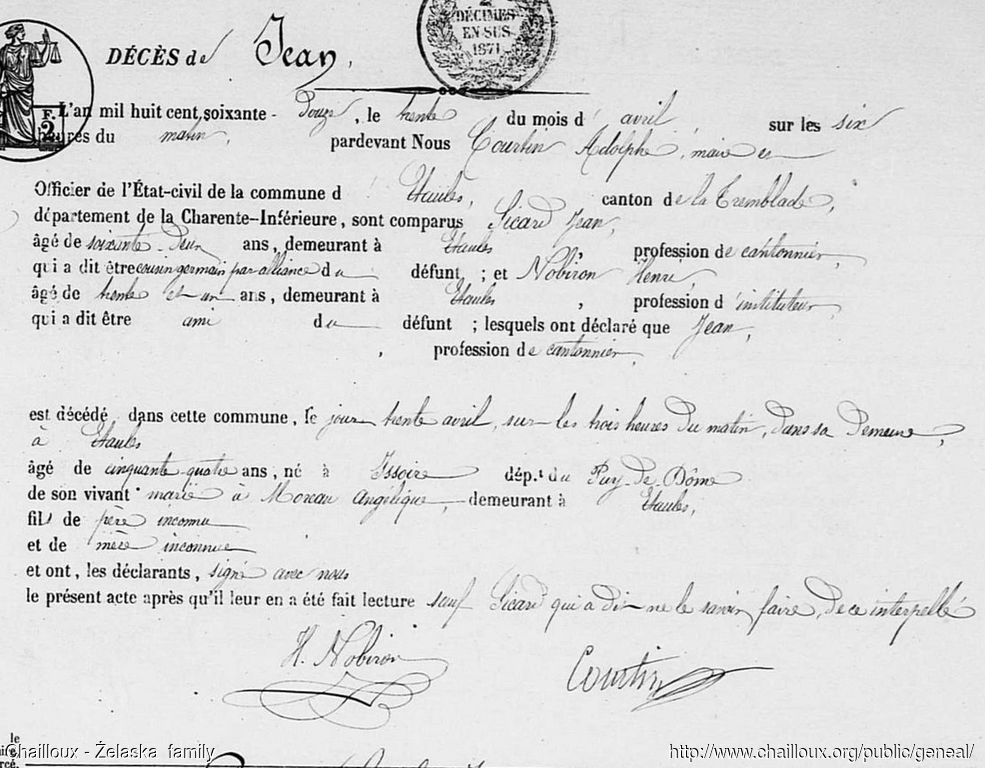 2
DÉCIMES
EN SUS
1871
F.
2
DÉCÈS de Jean,
L'an mil huit cent soixante-Douze, le trente du mois d'avril, sur les six
heures du matin, pardevant Nous Courtin Adolphe, maire et
Officier de l'État-civil de la commune d'Etaules, canton de la Tremblade,
département de la Charente-Inférieure, sont comparus Sicard Jean,
âgé de soixante-Deux ans, demeurant à Etaules profession de cantonnier,
qui a dit être cousin germain par alliance du défunt ; et Nobiron Henri,
âgé de trente et un ans, demeurant à Etaules, profession d'instituteur,
qui a dit être ami du défunt ; lesquels ont déclaré que Jean,
, profession de cantonnier,
est décédé dans cette commune, le jour trente avril, sur les trois heures du matin, dans sa Demeure,
à Etaules
âgé de cinquante-quatre ans, né à Issoire dép.t du Puy-de-Dôme
de son vivant marié à Moreau Angélique, demeurant à Etaules,
fils de père inconnu
et de mère inconnue
et ont, les déclarants, signé avec nous
le présent acte après qu'il leur en a été fait lecture sauf Sicard qui a dit ne le savoir faire, de ce interpellé
H. Nobiron Courtin
le
Chailloux - Želaska family http://www.chailloux.org/public/geneal/